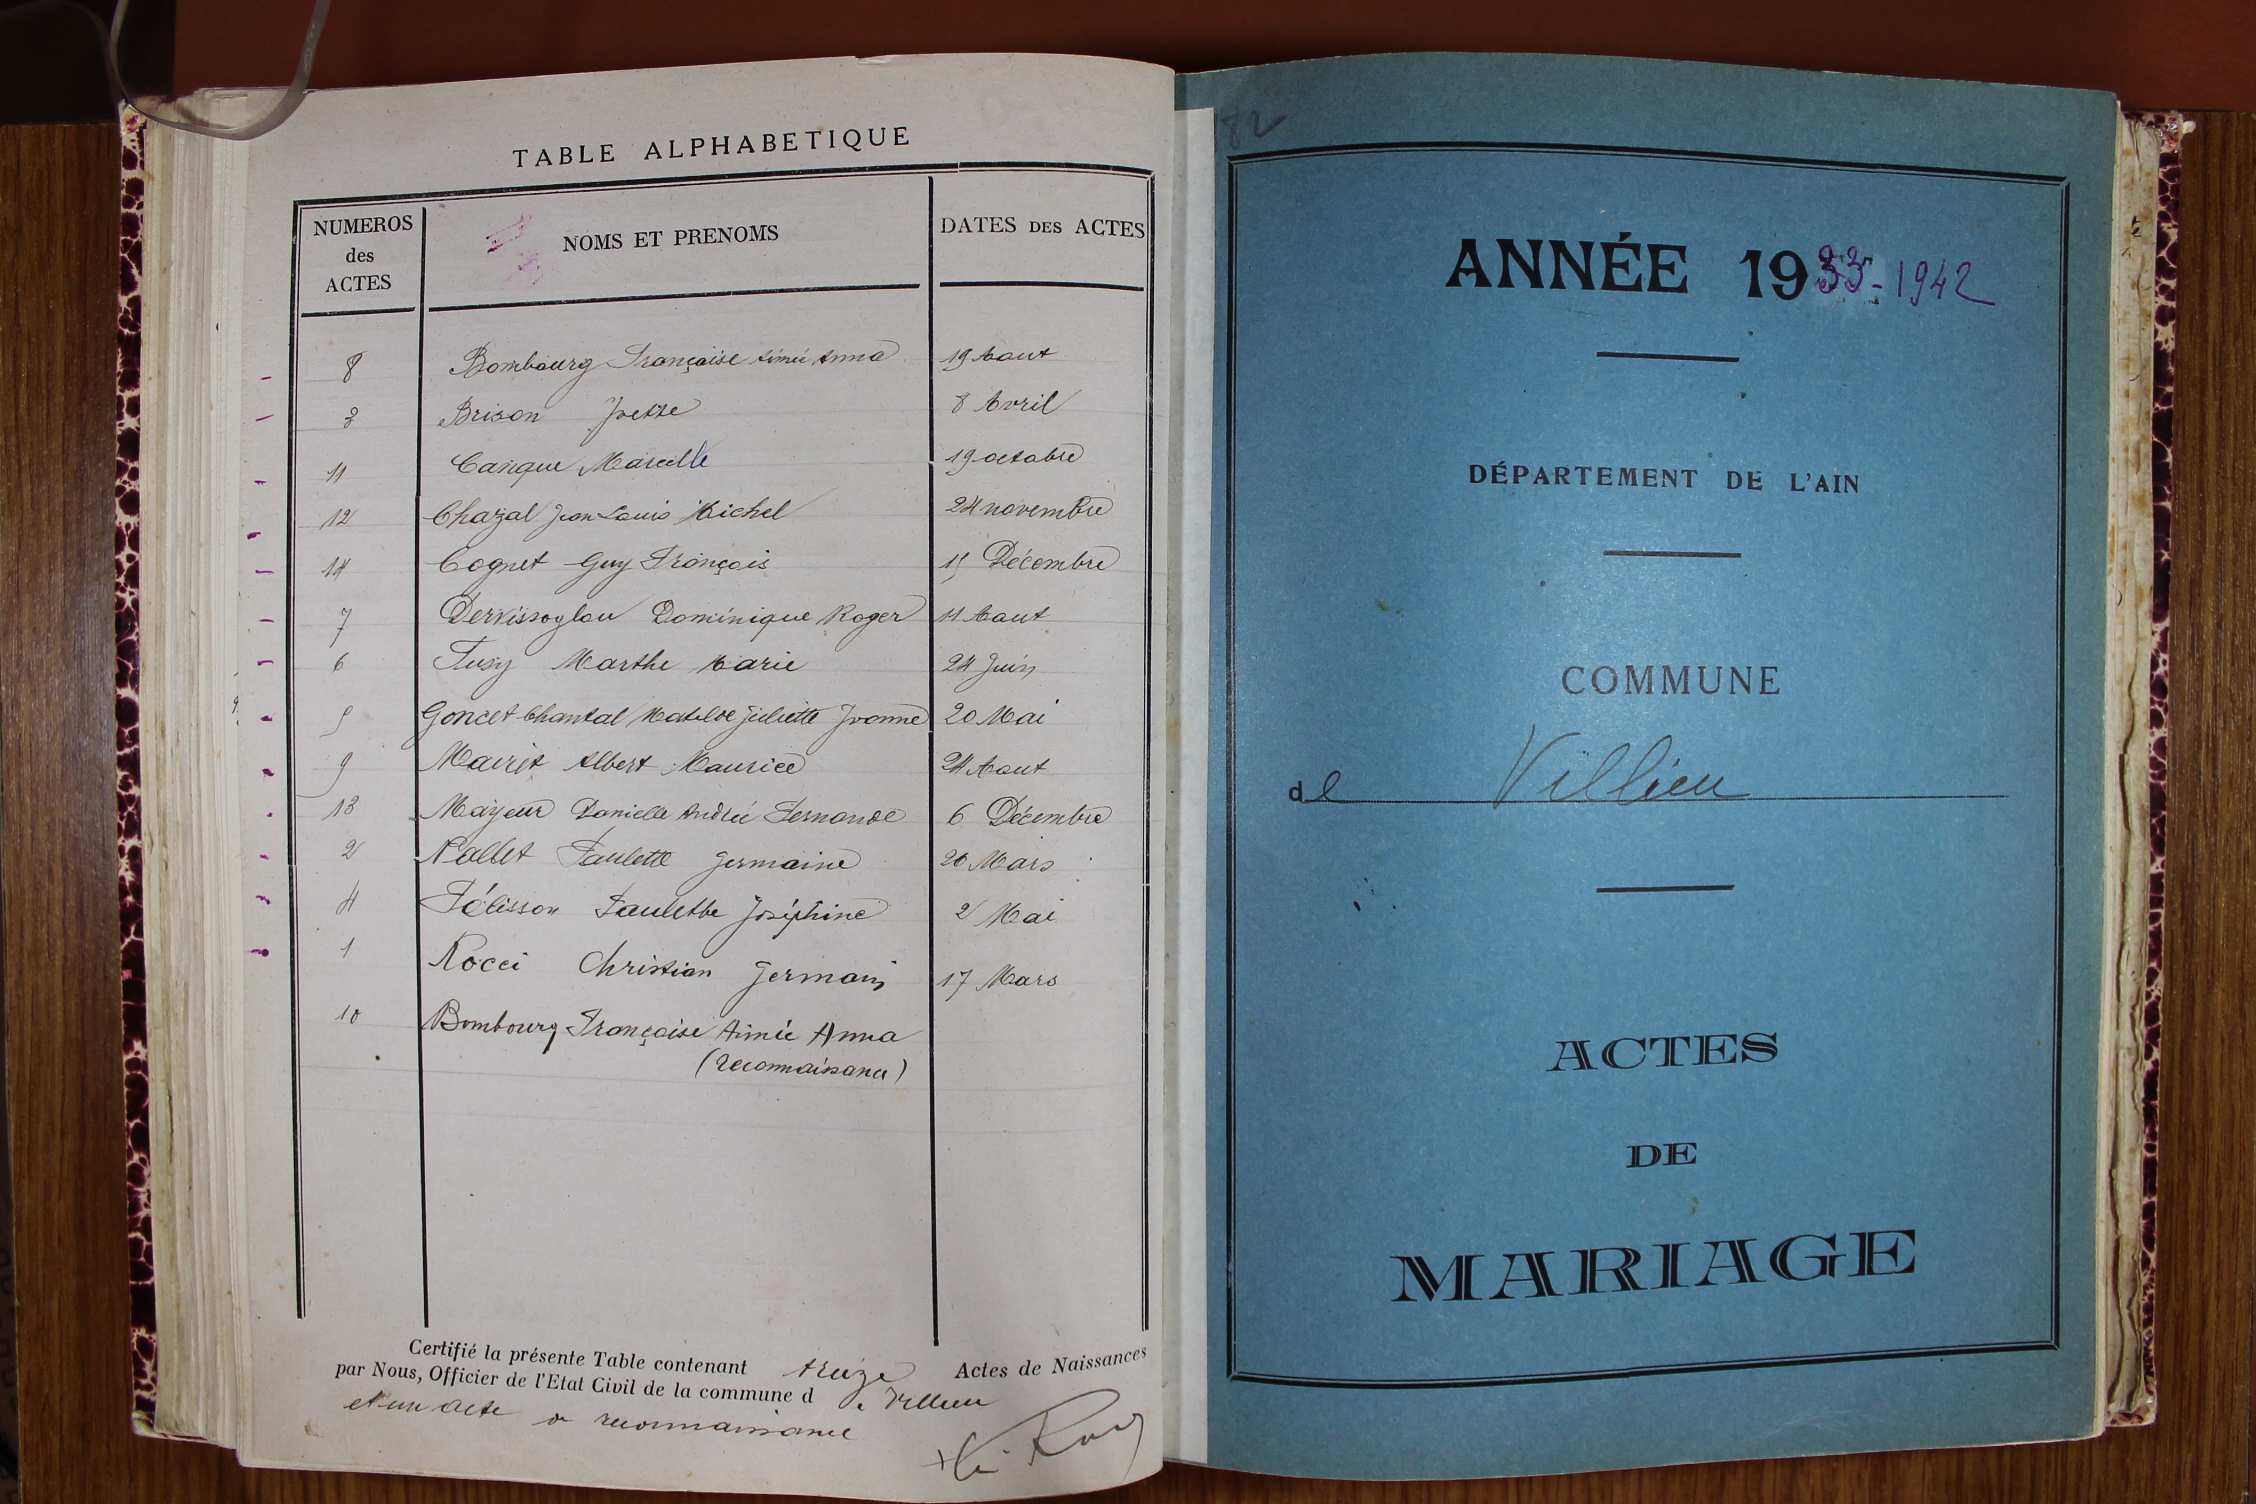 TABLE ALPHABETIQUE
NUMEROS des ACTES NOMS ET PRENOMS DATES DES ACTES
8 Bombourg Françoise Aimée Anna 19 Aout
3 Brison Yvette 8 Avril
11 Canque Marcelle 19 octobre
12 Chazal Jean Louis Michel 24 novembre
14 Cognet Guy François 15 Décembre
7 Dervissoglou Dominique Roger 11 Aout
6 Fusy Marthe Marie 24 Juin
5 Goncet Chantal Matilde Juliette Yvonne 20 Mai
9 Mairet Albert Maurice 24 Aout
13 Mayeur Danielle Andrée Fernande 6 Décembre
2 Nallet Paulette Germaine 26 Mars
4 Pélisson Paulette Joséphine 2 Mai
1 Rocci Christian Germain 17 Mars
10 Bombourg Françoise Aimée Anna
(reconnaissance)
Certifié la présente Table contenant treize Actes de Naissances
par Nous, Officier de l'Etat Civil de la commune de Villieu
et un acte de reconnaissance
82
ANNÉE 1933-1942
DÉPARTEMENT DE L'AIN
COMMUNE
de Villieu
ACTES
DE
MARIAGE